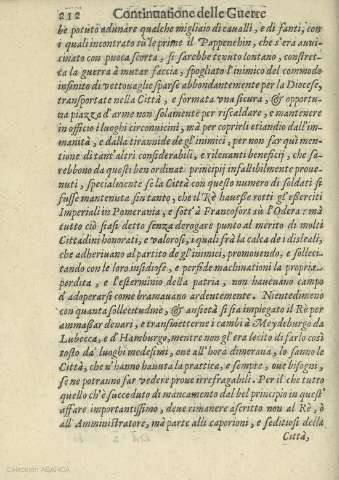 212 Continuatione delle Guerre
be potuto adunare qualche migliaio di caualli, e di fanti, con
i quali incontrato su le prime il Pappenhin, che s'era auui-
cinato con puoca scorta, si sarebbe tenuto lontano, constret-
ta la guerra à mutar faccia, spogliato l'inimico del commodo
infinito di vettouaglie sparse abbondantemente per la Diocese,
transportate nella Città, e formata vna sicura, & opportu-
na piazza d'arme non solamente per riscaldare, e mantenere
in officio i luoghi circonuicini, mà per coprirli etiandio dall'im-
manità, e dalla tirannide de gl'inimici, per non far quì men-
tione di tant'altri considerabili, e rileuanti beneficij, che sa-
rebbono da questi ben ordinati principij infallibilmente proue-
nuti, specialmente se la Città con questo numero di soldati si
fusse mantenuta sin tanto, che il Rè hauesse rotti gl'eserciti
Imperiali in Pomerania, e sott'à Francofort sù l'Odera: mà
tutto ciò siasi detto senza derogare punto al merito di molti
Cittadini honorati, e valorosi, i quali frà la calca de i disleali,
che adheriuano al partito de gl'inimici, promouendo, e solleci-
tando con le loro insidiose, e perfide machinationi la propria
perdita, e l'esterminio della patria, non haueuano campo
d'adoperarsi come bramauano ardentemente. Nientedimeno
con quanta sollecitudine, & ansietà si sia impiegato il Rè per
ammassar denari, e transmetterne i cambi à Meydeburgo da
Lubecca, e d'Hamburgo, mentre non gl'era lecito di farlo così
tosto da' luoghi medesimi, oue all'hora dimoraua, lo sanno le
Città, che n'hanno hauuta la prattica, e sempre, oue bisogni,
se ne potranno far vedere proue irrefragabili. Per il che tutto
quello ch'è succeduto di mancamento dal bel principio in quest'
affare importantissimo, deue rimanere ascritto non al Rè, ò
all'Amministratore, mà parte alli caporioni, e seditiosi della
Città,
Colección ABANCA